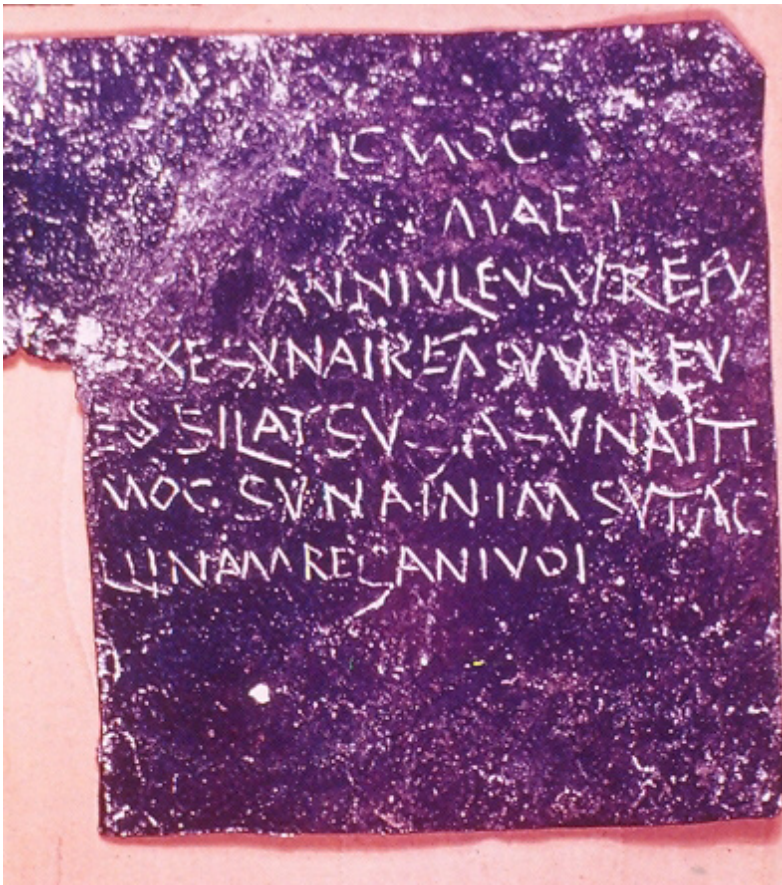 IC MOC
MAE I
ANNIVLEV SVEREPV
XE SVNAIREV SVNIREV
ES SILATSVGVA SVNAITI
MOC SVNAINIMSVTAC
LLINAMREG ANIVOI